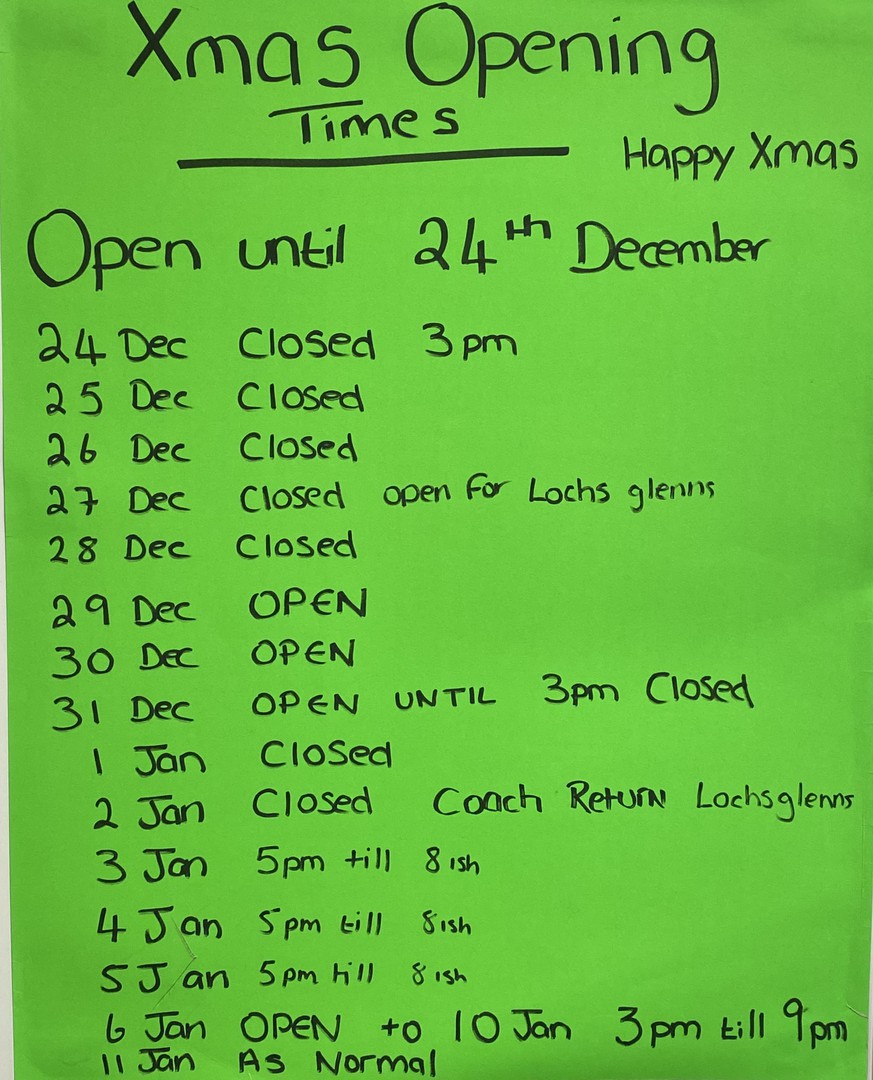 Xmas Opening
Times
Happy Xmas
Open until 24th December
24 Dec Closed 3pm
25 Dec Closed
26 Dec Closed
27 Dec Closed open for Lochs glenns
28 Dec Closed
29 Dec OPEN
30 Dec OPEN
31 Dec OPEN UNTIL 3pm Closed
1 Jan Closed
2 Jan Closed Coach Return Lochsglenns
3 Jan 5pm till 8ish
4 Jan 5pm till 8ish
5 Jan 5pm till 8ish
6 Jan OPEN to 10 Jan 3pm till 9pm
11 Jan As Normal